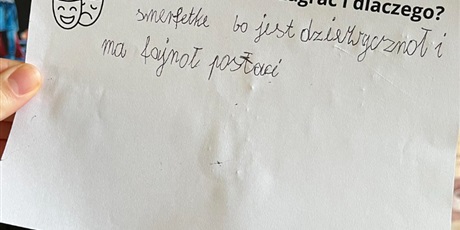 agrać i dlaczego?
smerfetke bo jest dziewycznoł i
ma fajnoł postaci